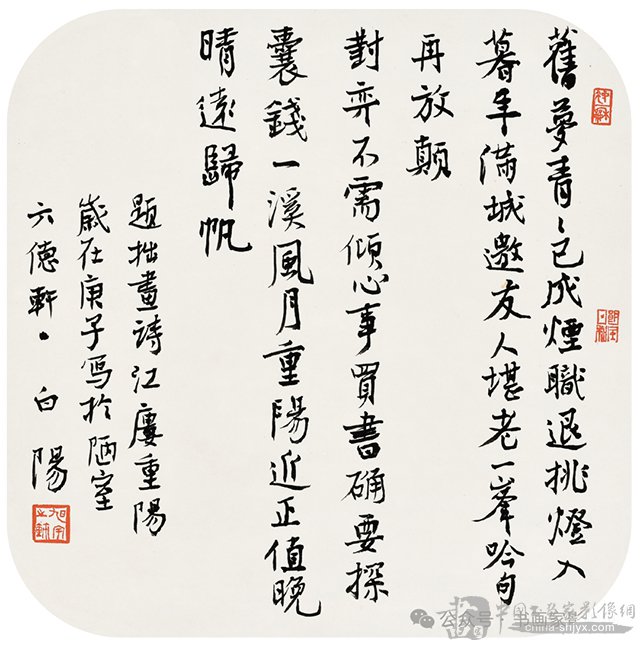 舊夢青〻已成煙職退挑燈入
暮年滿城邀友人堪老一峯吟句
再放顛
對弈不需傾心事買書確要探
囊錢一溪風月重陽近正值晚
晴遠歸帆
題拙畫詩江廔重陽
歲在庚子寫於陋室
六德軒·白陽
公众号
china-shjyx.com